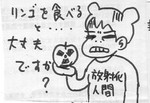 リンゴを食べる
と・・・・
大丈夫
ですか
?
放射化
人間